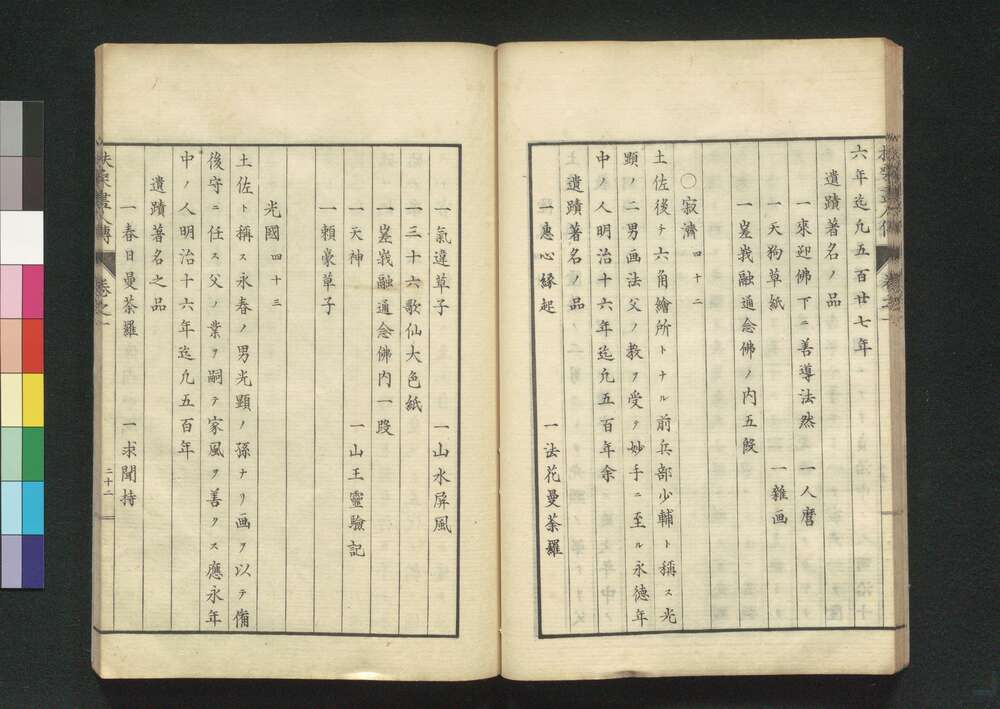 六年迄凢五百廿七年
遺蹟著名ノ品
一來迎佛下ニ善導法然 一人麿
一天狗草紙 一雜画
一嵳峩融通念佛ノ内五段
〇寂濟 四十二
土佐後チ六角繪所トナル前兵部少輔ト稱ス光
顕ノ二男画法父ノ教ヲ受ケ妙手ニ至ル永徳年
中ノ人明治十六年迄凢五百年余
遺蹟著名ノ品
一惠心縁起 一法花曼荼羅
一氣違草子 一山水屏風
一三十六歌仙大色紙
一嵳峩融通念佛内一段
一天神 一山王靈驗記
一頼豪草子
光國 四十三
土佐ト稱ス永春ノ男光顕ノ孫ナリ画ヲ以テ備
後守ニ任ス父ノ業ヲ嗣テ家風ヲ善クス應永年
中ノ人明治十六年迄凢五百年
遺蹟著名之品
一春日曼荼羅 一求聞持
扶桑畫人傳 卷之一 二十二